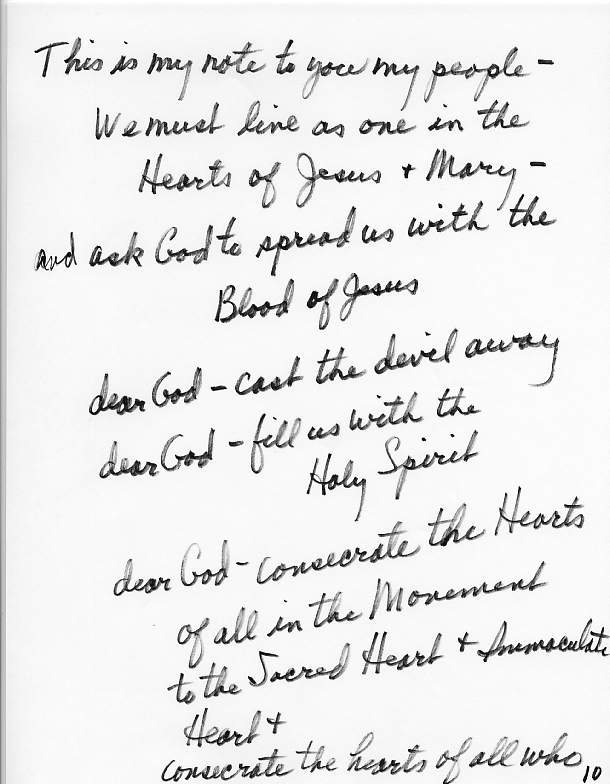 This is my note to you my people -
We must live as one in the
Hearts of Jesus + Mary -
and ask God to spread us with the
Blood of Jesus
dear God - cast the devil away
dear God - fill us with the
Holy Spirit
dear God - consecrate the Hearts
of all in the Movement
to the Sacred Heart + Immaculate
Heart +
consecrate the hearts of all who
10